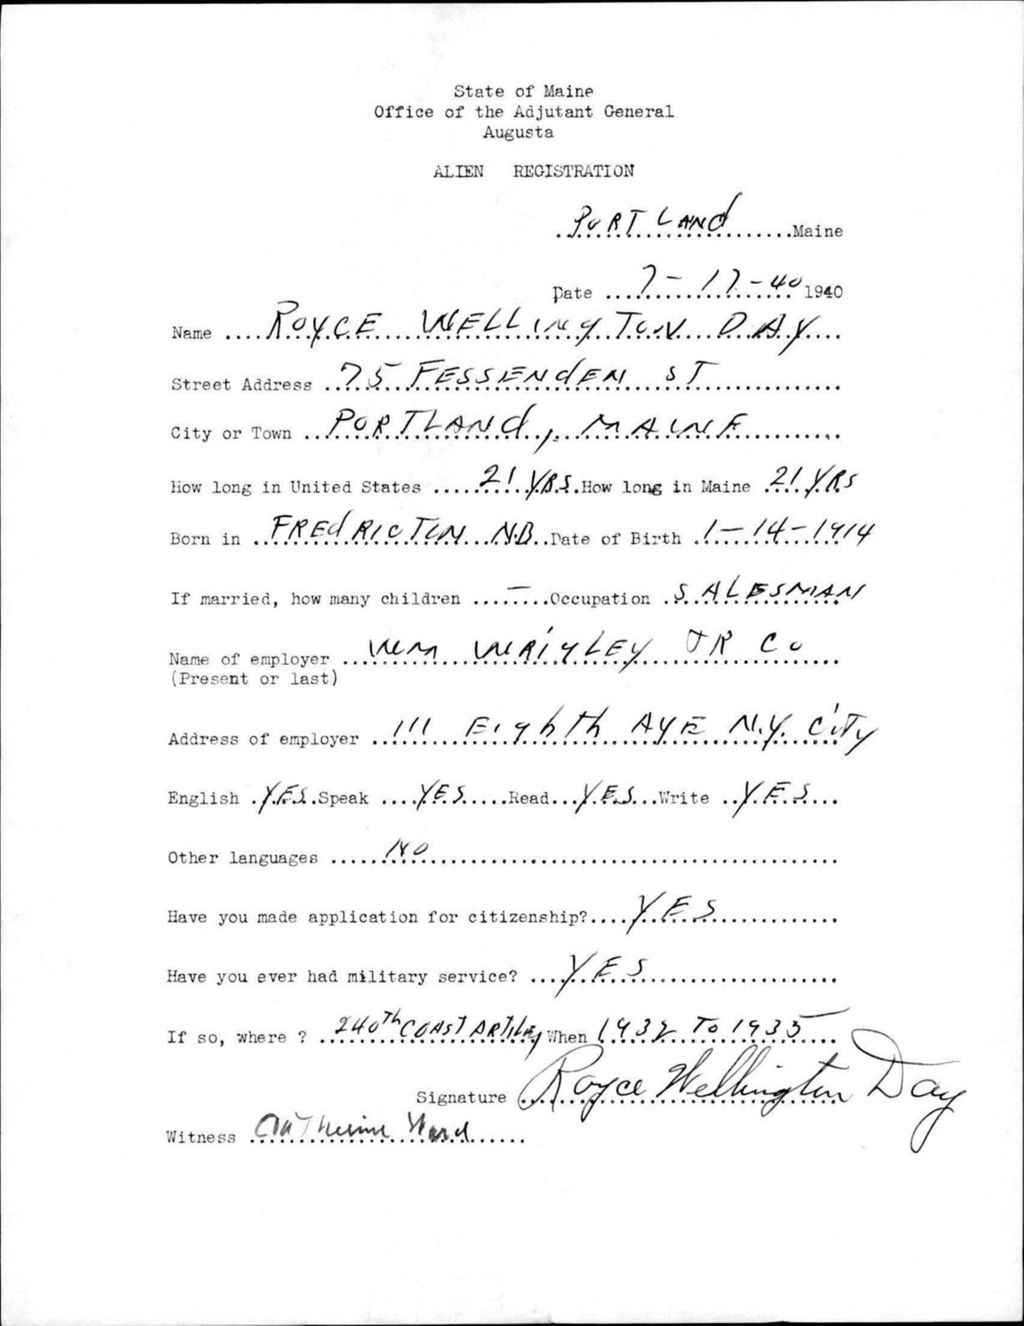 State of Maine
Office of the Adjutant General
Augusta
ALIEN REGISTRATION
PORTLAND Maine
Date 7-17-40 1940
Name ROYCE WELLINGTON DAY
Street Address 75 FESSENDEN ST
City or Town PORTLAND, MAINE
How long in United States 21 YRS. How long in Maine 21 YRS
Born in FREDRICTON N.B. Date of Birth 1-14-1914
If married, how many children — Occupation SALESMAN
Name of employer WM WRIGLEY JR CO
(Present or last)
Address of employer 111 EIGHTH AVE N.Y. CITY
English YES. Speak YES Read YES Write YES
Other languages NO
Have you made application for citizenship? YES
Have you ever had military service? YES
If so, where ? 240th COAST ARTILERY When 1932 TO 1935
Signature Royce Wellington Day
Witness Catherine Ward